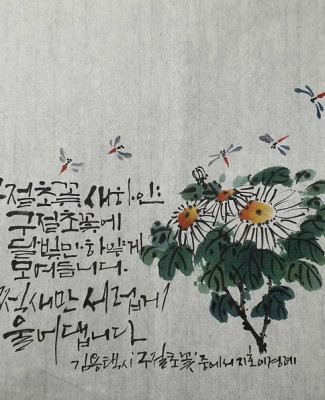 구절초꽃 새하얀
구절초꽃에
달빛만 하얗게
모여듭니다.
쩍새만 서럽게
울어댑니다
김용택 시 '구절초꽃' 중에서 지호 이정례